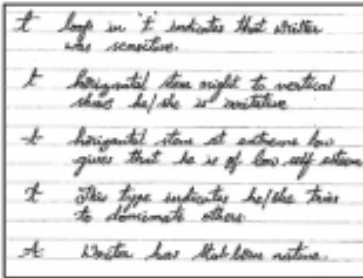 t loop in 't' indicates that writter
was sensitive.
t horizontal stem right to vertical
shows he/she is imitative
t horizontal stem at extreme low
gives that he is of low self esteem
t This type indicates he/she tries
to dominate others
t Writer has stubborn nature.